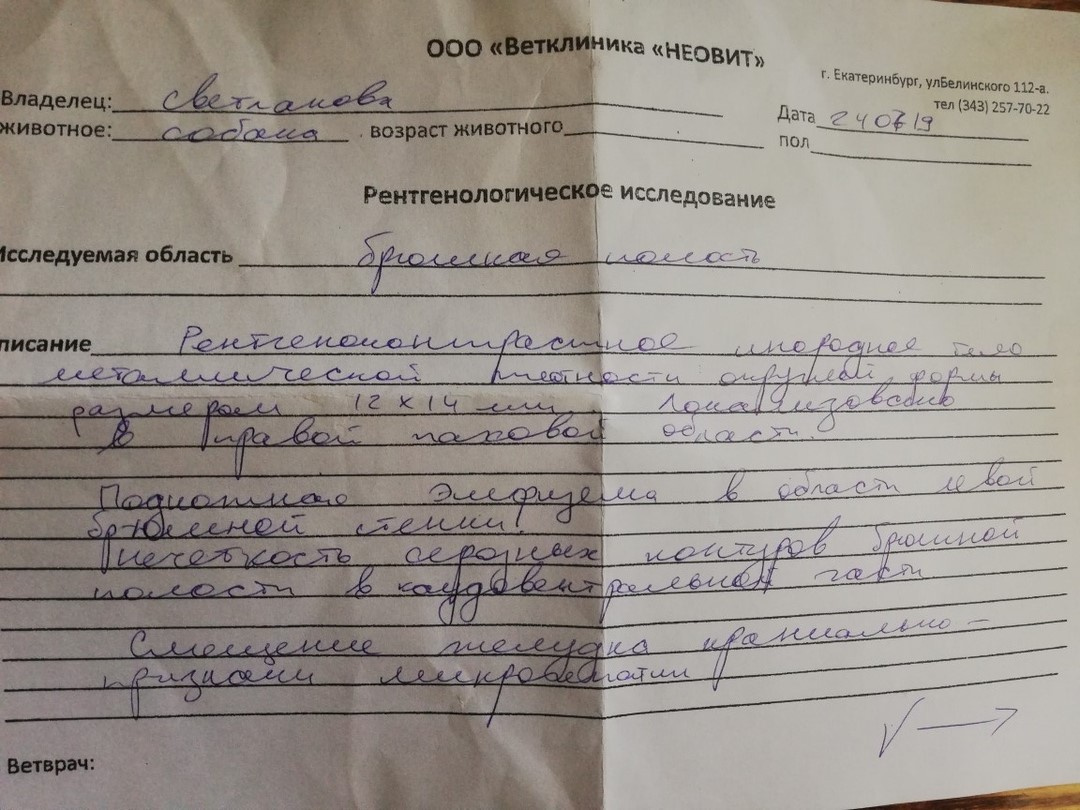 ООО «Ветклиника «НЕОВИТ»
г. Екатеринбург, улБелинского 112-а.
тел (343) 257-70-22
Владелец: Светлакова
Дата 240719
животное: собака . возраст животного
пол
Рентгенологическое исследование
Исследуемая область брюшная полость
писание Рентгеноконтрастное инородное тело
металлической плотности округлой формы
размером 12 х 14 мм, локализовано
в правой паховой области.
Подкожная эмфизема в области левой
брюшной стенки.
Нечеткость серозных контуров брюшной
полости в каудовентральной части
Смещение желудка краниально –
признаки микрогепатии
Ветврач: